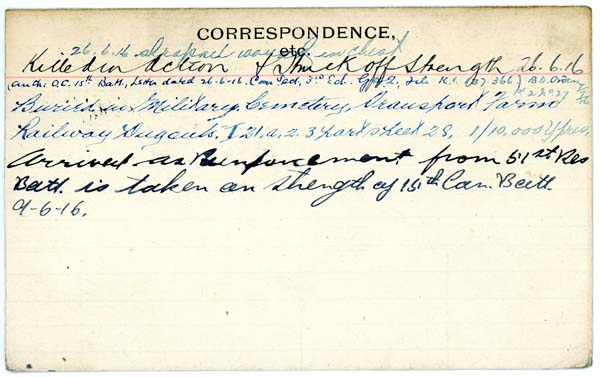 CORRESPONDENCE,
etc.
26.6.16 shrapnel wound in chest
Killed in Action & Struck off Strength 26.6.16
Auth: O.C. 15th Batt, Letter dated 26-6-16. Can Sec, 3rd Ech. G.H.Q. file K.1. (27366) B.D. Orders
Buried in Military Cemetery, Transport Farm
Railway Dugouts, I 21.a.2.3 part sheet 28, 1/10,000 Ypres.
Arrived as Reinforcement from 51st Res
Batt. is taken on strength of 15th Can. Batt.
9-6-16.